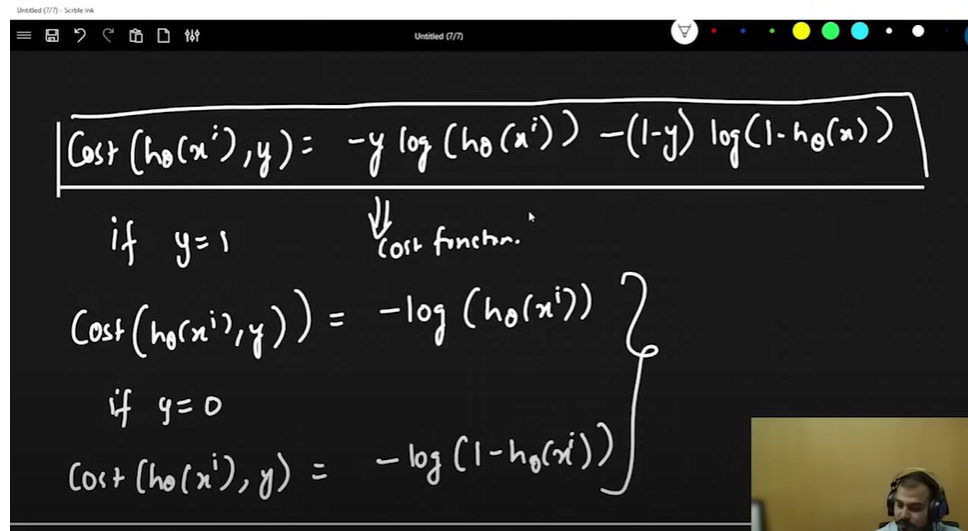 Untitled (7/7) - Scrble Ink
Untitled (7/7)
Cost (hθ(xⁱ), y) = -y log (hθ(xⁱ)) -(1-y) log(1-hθ(x))
if y=1
Cost functon.
Cost (hθ(xⁱ), y)) = -log (hθ(xⁱ))
if y=0
Cost (hθ(xⁱ), y) = -log (1-hθ(xⁱ))